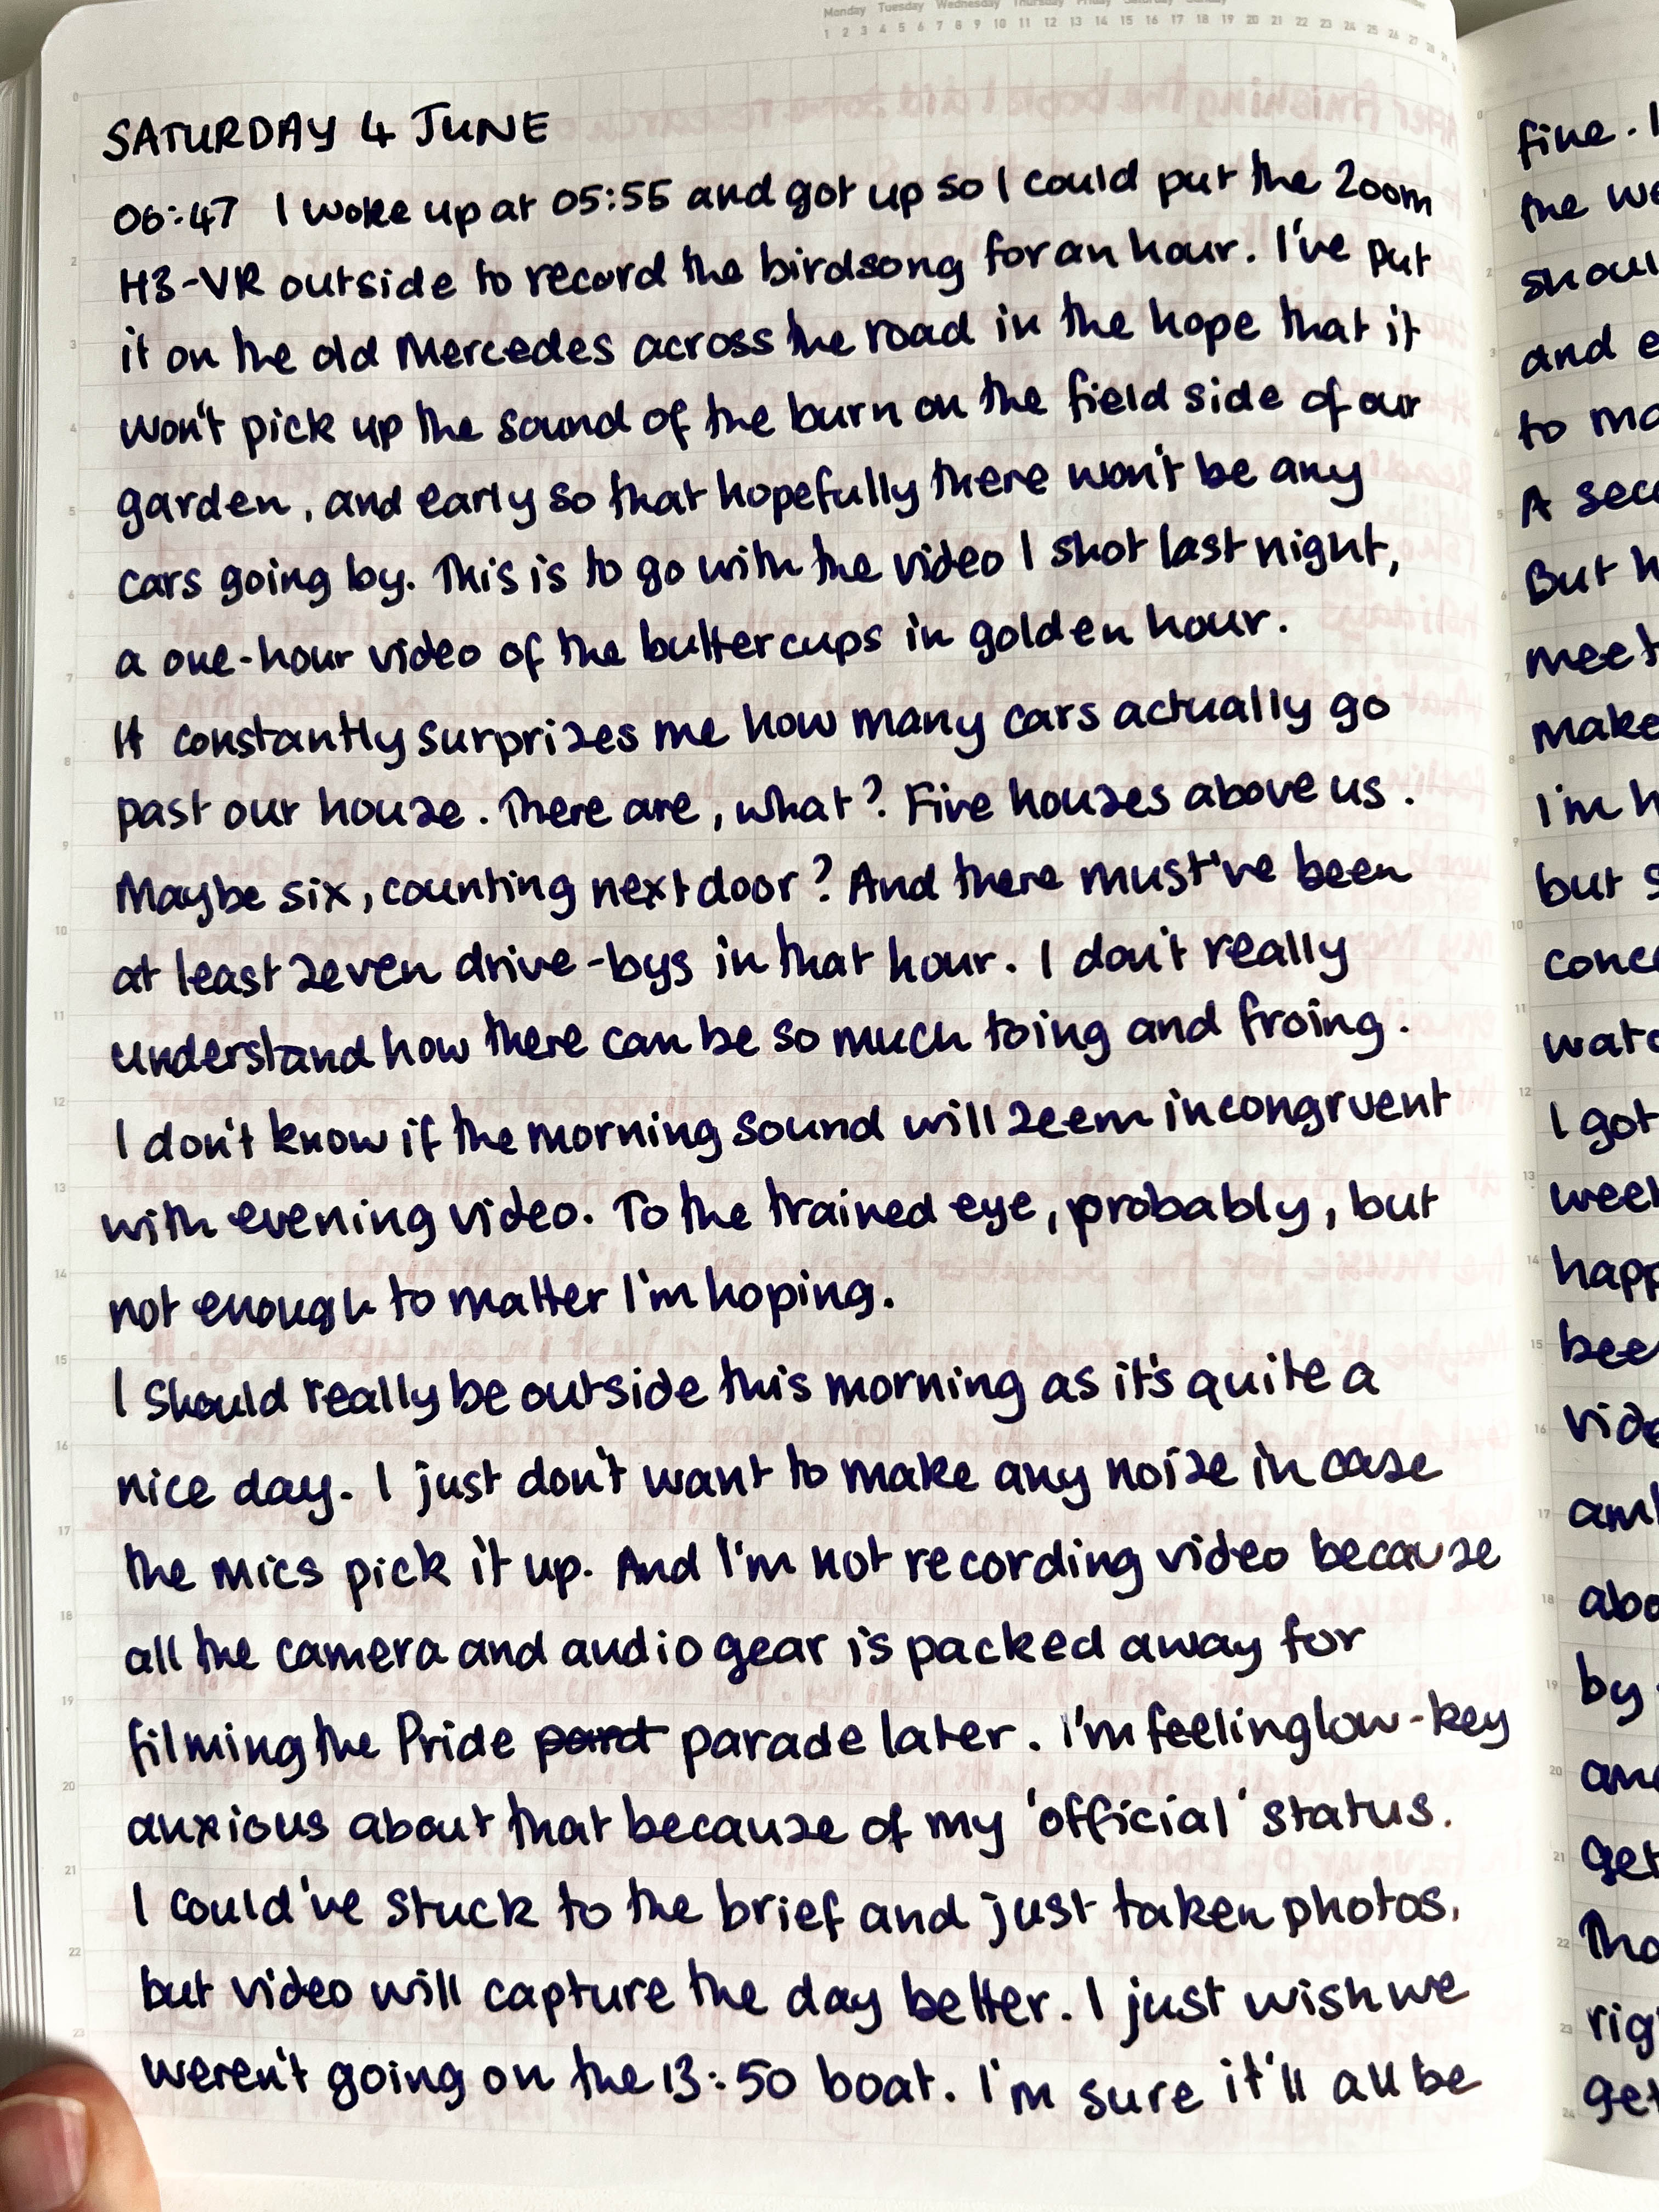 Monday Tuesday Wednesday Thursday Friday Saturday Sunday
1 2 3 4 5 6 7 8 9 10 11 12 13 14 15 16 17 18 19 20 21 22 23 24 25 26 27 28
SATURDAY 4 JUNE
06:47 I woke up at 05:55 and got up so I could put the Zoom
H3-VR outside to record the birdsong for an hour. I've put
it on the old Mercedes across the road in the hope that it
won't pick up the sound of the burn on the field side of our
garden, and early so that hopefully there won't be any
cars going by. This is to go with the video I shot last night,
a one-hour video of the buttercups in golden hour.
It constantly surprises me how many cars actually go
past our house. There are, what? Five houses above us.
Maybe six, counting next door? And there must've been
at least seven drive-bys in that hour. I don't really
understand how there can be so much toing and froing.
I don't know if the morning sound will seem incongruent
with evening video. To the trained eye, probably, but
not enough to matter I'm hoping.
I should really be outside this morning as it's quite a
nice day. I just don't want to make any noise in case
the mics pick it up. And I'm not recording video because
all the camera and audio gear is packed away for
filming the Pride pard parade later. I'm feeling low-key
anxious about that because of my 'official' status.
I could've stuck to the brief and just taken photos,
but video will capture the day better. I just wish we
weren't going on the 13:50 boat. I'm sure it'll all be
fine. I
the we
shoul
and e
to ma
A seco
But h
meet
make
I'm h
but s
conce
watc
I got
week
happ
bee
vide
aml
abo
by
and
get
Tho
rig
get